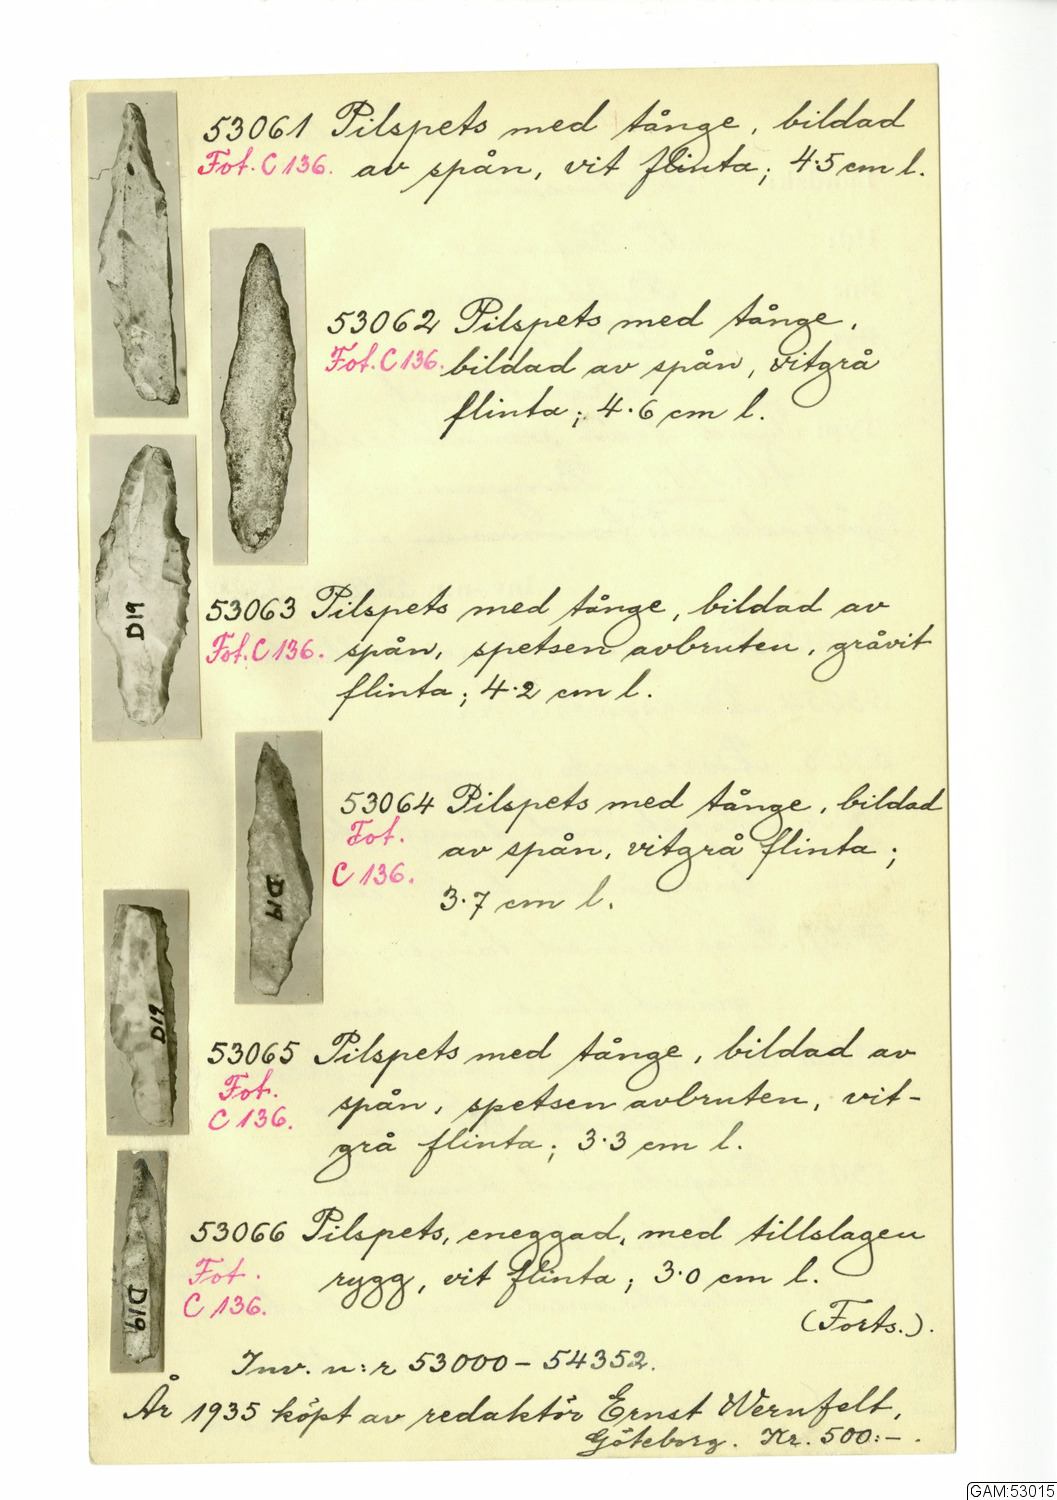 53061 Pilspets med tånge, bildad
Fot. C 136. av spån, vit flinta; 4.5 cm l.
53062 Pilspets med tånge,
Fot. C 136. bildad av spån, vitgrå
flinta; 4.6 cm l.
D19
53063 Pilspets med tånge, bildad av
Fot. C 136. spån, spetsen avbruten, gråvit
flinta; 4.2 cm l.
53064 Pilspets med tånge, bildad
Fot. av spån, vitgrå flinta;
C 136.
3.7 cm l.
D19
D19
53065 Pilspets med tånge, bildad av
Fot. spån, spetsen avbruten, vit-
C 136.
grå flinta; 3.3 cm l.
53066 Pilspets, eneggad, med tillslagen
Fot. rygg, vit flinta; 3.0 cm l.
C 136.
D19
(Forts.).
Inv. n:r 53000 - 54352.
År 1935 köpt av redaktör Ernst Wernfelt,
Göteborg. Kr. 500:-.
GAM:53015